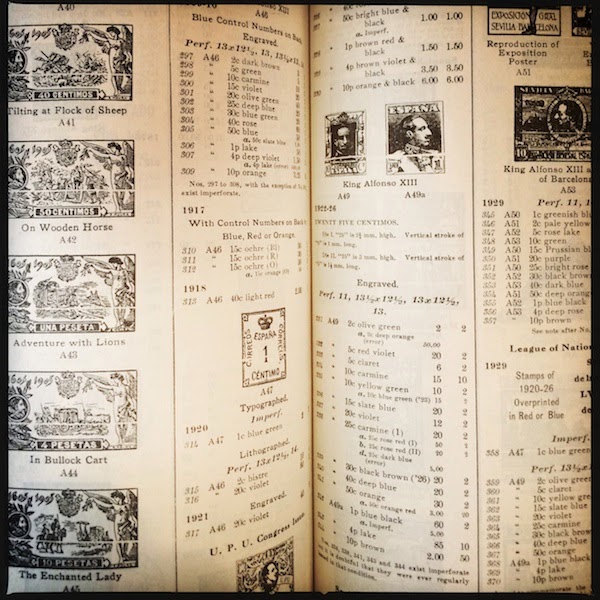 A40
40 CENTIMOS
Tilting at Flock of Sheep
A41
50 CENTIMOS
On Wooden Horse
A42
UNA PESETA
Adventure with Lions
A43
4 PESETAS
In Bullock Cart
A44
10 PESETAS
The Enchanted Lady
A45
Alfonso XIII
A46
Blue Control Numbers on Back
Engraved.
Perf. 13x12½, 13, 13½x11,
297 A46 2c dark brown
298 " 5c green
299 " 10c carmine
300 " 15c violet
301 " 20c olive green
302 " 25c deep blue
303 " 30c blue green
304 " 40c rose
305 " 50c blue
a. 50c slate blue
306 " 1p lake
307 " 4p deep violet
a. 4p lake (error)
309 " 10p orange
Nos. 297 to 308, with the exception of
exist imperforate.
1917
With Control Numbers on Back
Blue, Red or Orange.
310 A46 15c ochre (Bl)
311 " 15c ochre (R)
312 " 15c ochre (O)
1918
313 A46 40c light red
CORREOS
1
CÉNTIMO
A47
Typographed.
Imperf.
1920
314 A47 1c blue green
Lithographed.
Perf. 13x12½, 14.
315 " 2c bistre
316 " 20c violet
Engraved.
1921
317 A46 20c violet
U. P. U. Congress Issue
" 50c bright blue &
black 1.00 1.00
a. Imperf.
" 1p brown red &
black 1.50 1.50
" 4p brown violet &
black 3.50 3.50
" 10p orange & black 6.00 6.00
ESPAÑA
King Alfonso XIII
A49 A49a
1922-26
TWENTY FIVE CENTIMOS.
Die I. "25" is 2½ mm. high. Vertical stroke of
mm. long.
Die II. "25" is 3 mm. high. Vertical stroke of
mm. long.
Engraved.
Perf. 11, 13½x12½, 13x12½,
13.
A49 2c olive green 2 2
a. 2c deep orange
(error) 50.00
" 5c red violet 20 2
" 5c claret 6 2
" 10c carmine 15 10
" 10c yellow green 10 2
a. 10c blue green ('23) 15 2
" 15c slate blue 20 2
" 20c violet 12 2
" 25c carmine (I) 20 2
a. 25c rose red (I) 50 2
b. 25c rose red (II) 20 2
25c dark blue
(error) 5.00
" 30c black brown ('26) 20 2
" 40c deep blue 20 2
" 50c orange 30 2
a. 50c orange red 3.00 20
A49a 1p blue black 60 2
a. Imperf. 5.00
" 4p lake
" 10p brown 85 10
2.00 50
341, 343 and 344 exist imperforate
doubtful that they were ever regularly
in that condition.
EXPOSICIÓN GRAL
SEVILLA BARCEL
Reproduction of
Exposition
Poster
A51
SEVILLA
10
King Alfonso XIII a
of Barcelona
A53
1929 Perf. 11,
345 A50 1c greenish bl
346 A51 2c pale yellow
347 A52 5c rose lake
348 A53 10c green
349 A50 15c Prussian bl
350 A51 20c purple
351 A50 25c bright rose
352 A52 30c black brown
353 A53 40c dark blue
354 A51 50c deep orange
355 A52 1p blue black
356 A53 4p deep rose
357 " 10p brown
See note after No.
League of Nation
1929
Stamps of
1920-26
Overprinted
in Red or Blue
Imperf.
358 A47 1c blue green
Perf. 13½x
359 A49 2c olive green
360 " 5c claret
361 " 10c yellow green
362 " 15c slate blue
363 " 20c violet
364 " 25c carmine
365 " 30c black brown
366 " 40c deep blue
367 " 50c orange
368 A49a 1p blue black
369 " 4p lake
370 " 10p brown